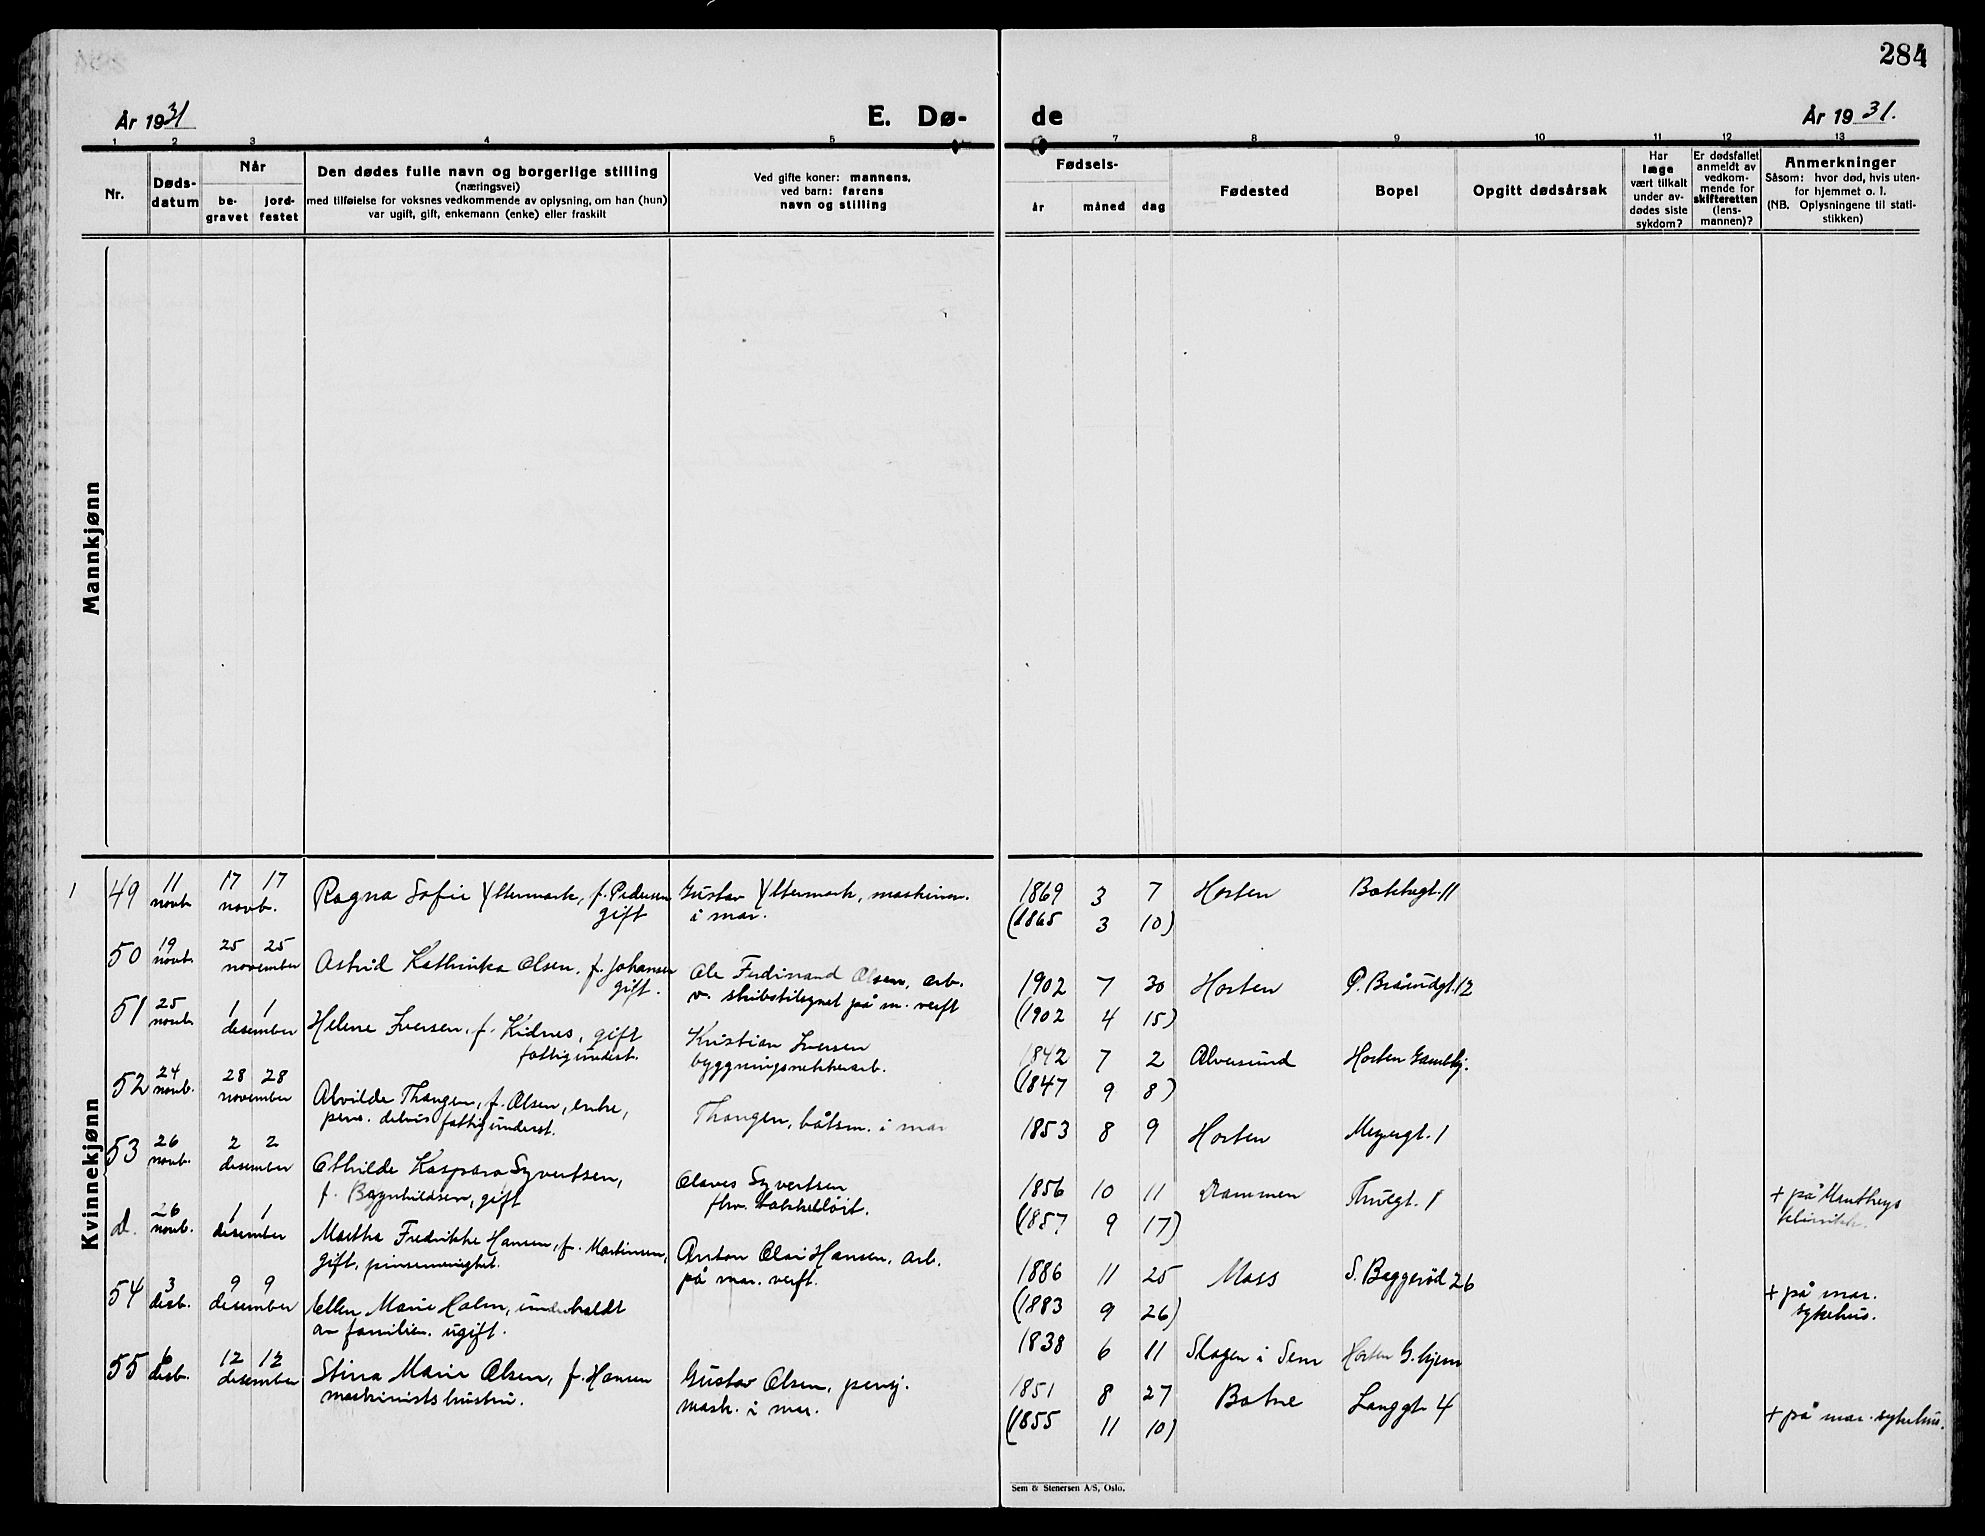 284
År 1931
E. Dø-
de
År 1931.
1 2 3 4 5 6 7 8 9 10 11 12 13
Nr.
Døds-
datum
Når
be-
gravet
jord-
festet
Den dødes fulle navn og borgerlige stilling
(næringsvei)
med tilføielse for voksnes vedkommende av oplysning, om han (hun)
var ugift, gift, enkemann (enke) eller fraskilt
Ved gifte koner: mannens,
ved barn: farens
navn og stilling
Fødsels-
år måned dag
Fødested
Bopel
Opgitt dødsårsak
Har
læge
vært tilkalt
under av-
dødes siste
sykdom?
Er dødsfallet
anmeldt av
vedkom-
mende for
skifteretten
(lens-
mannen)?
Anmerkninger
Såsom: hvor død, hvis uten-
for hjemmet o. l.
(NB. Oplysningene til stati-
stikken)
Mannkjønn
Kvinnekjønn
1
49 11 novb. 17 17 novb. Ragna Sofie Yttermark, f. Pedersen
gift
Gustav Yttermark, maskinm.
i mar.
1869 3 7 Horten Bakkegt. 11
(1865 3 10)
50 19 novb. 25 25 november Astrid Kathinka Olsen, f. Johansen
gift.
Ole Ferdinand Olsen, arb.
v. skibstilsynet på m. verft
1902 7 30 Horten P. Bråundgt. 12
(1902 4 15)
51 25 novb. 1 1 desember Helene Iversen, f. Kidnes, gift
fattigunderst.
Kristian Iversen
byggningsnekkerarb.
1842 7 2 Alversund Horten Gamlehj.
(1847 9 8)
52 24 novb. 28 28 november Alvilde Thangen, f. Olsen, enke,
pens. delvis fattigunderst.
Thangen, båtsm. i mar
1853 8 9 Horten Meyergt. 1
53 26 novb. 2 2 desember Othilde Kaspara Syvertsen,
f. gift
Olaves Syvertsen
1856 10 11 Drammen Thulgt. 1
(1857 9 17)
+ på
klinikk.
d. 26 novb. 1 1 desember Martha Fredrikke Hansen, f. Martinsen,
gift, pinsemenighet.
Anton Olai Hansen, arb.
på mar. verft.
1886 11 25 Moss S. Beggerød 26
(1883 9 26)
+ på mar.
sykehus.
54 3 desb. 9 9 desember Ellen Marie Holm, underholdt
av familien. ugift.
1838 6 11 Skagen i Sem Horten G. hjem
55 6 desb. 12 12 desember Stina Marie Olsen, f. Hansen
maskinists hustru.
Gustav Olsen, pensj.
mask. i mar.
1851 8 27 Botne Langgt. 4
(1855 11 10)
+ på mar. sykehus.
Sem & Stenersen A/S, Oslo.